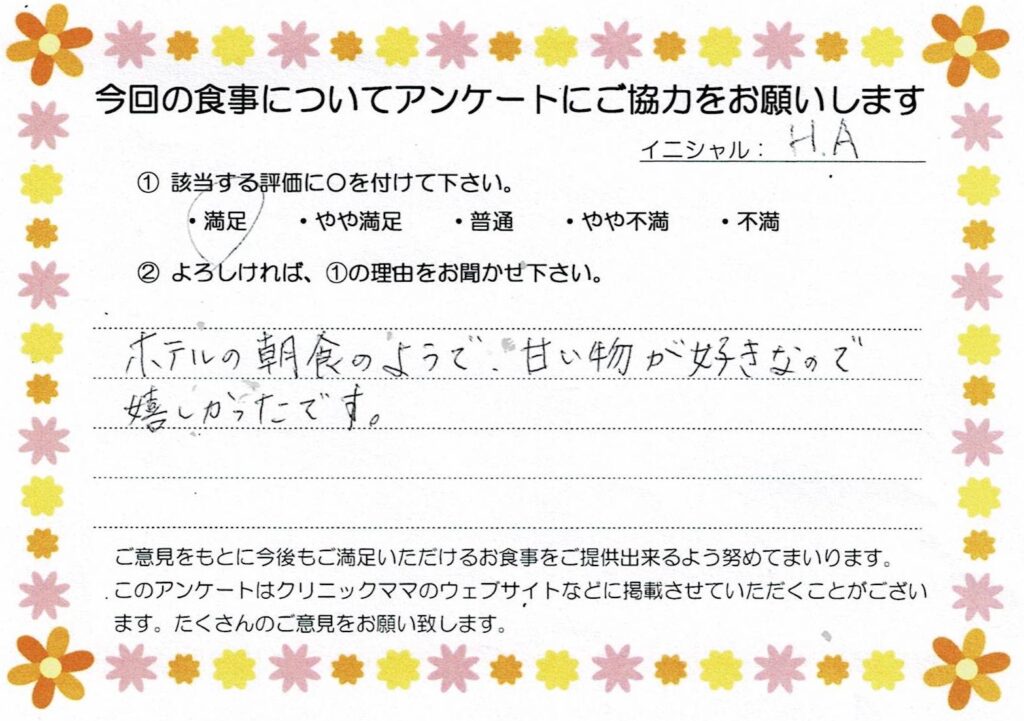 今回の食事についてアンケートにご協力をお願いします
イニシャル： H.A
① 該当する評価に〇を付けて下さい。
・満足 ・やや満足 ・普通 ・やや不満 ・不満
② よろしければ、①の理由をお聞かせ下さい。
ホテルの朝食のようで、甘い物が好きなので
嬉しかったです。
ご意見をもとに今後もご満足いただけるお食事をご提供出来るよう努めてまいります。
このアンケートはクリニックママのウェブサイトなどに掲載させていただくことがござい
ます。たくさんのご意見をお願い致します。